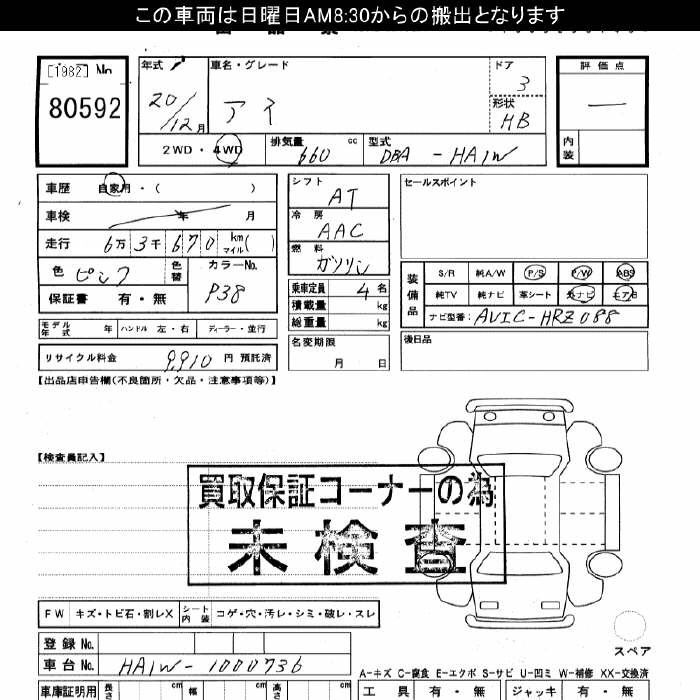 この車両は日曜日AM8:30からの搬出となります
[1982] No
80592
年式
20/12月
車名・グレード
アイ
ドア
3
形状
HB
評価点
—
内装
2WD・4WD
排気量 660 cc
型式 DBA-HA1W
車歴 自家用・( )
車検 年 月
走行 6万3千670 km マイル ( )
色 ピンク
色替
カラーNo. P38
保証書 有・無
モデル年式 年 ハンドル 左・右 ディーラー・並行
リサイクル料金 9,910 円 預託済
シフト AT
冷房 AAC
燃料 ガソリン
乗車定員 4 名
積載量 kg
総重量 kg
名変期限
月 日
セールスポイント
装備品
S/R 純A/W P/S P/W ABS
純TV 純ナビ 革シート 外ナビ エアB
ナビ型番: AVIC-HRZ088
後日品
【出品店申告欄(不良箇所・欠品・注意事項等)】
【検査員記入】
買取保証コーナーの為
未検査
FW キズ・トビ石・割レX シート内装 コゲ・穴・汚レ・シミ・破レ・スレ
スペア
登録No.
車台No. HA1W-1000736
A-キズ C-腐食 E-エクボ S-サビ U-凹ミ W-補修 XX-交換済
車庫証明用 長さ cm 幅 cm 高さ cm
工具 有・無 ジャッキ 有・無